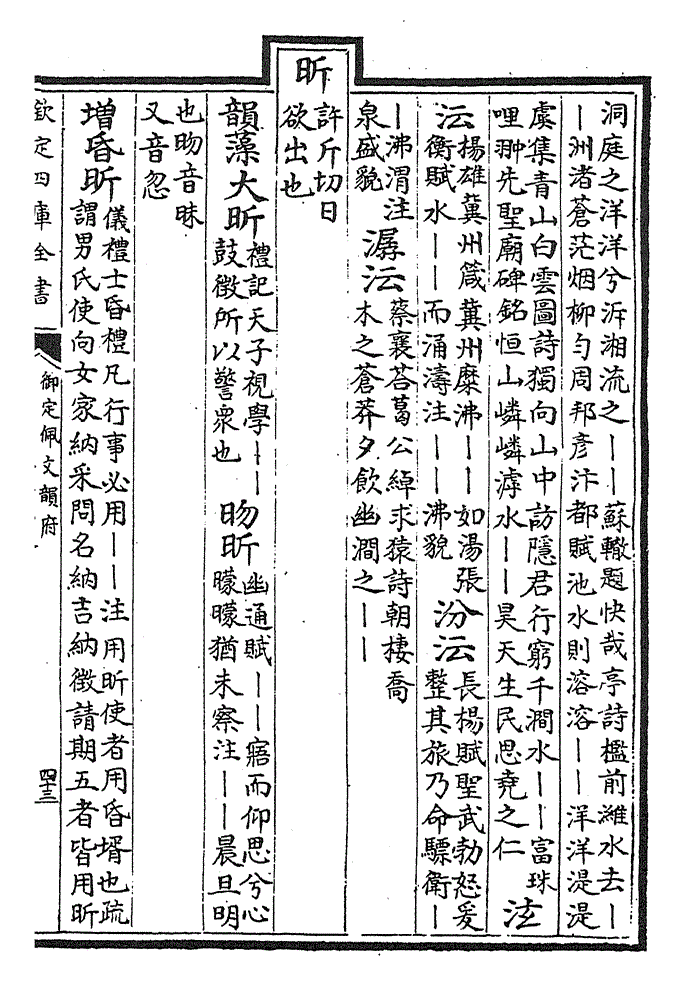 洞庭之洋洋兮泝湘流之——蘇轍題快哉亭詩檻前濰水去—
—洲渚蒼茫烟柳勻周邦彥汴都賦池水則溶溶——洋洋湜湜
虞集青山白雲圖詩獨向山中訪隱君行窮千澗水——富珠
哩翀先聖廟碑銘恒山嶙嶙滹水——昊天生民思堯之仁 浤
沄 揚雄冀州箴冀州糜沸——如湯張
衡賦水——而涌濤注——沸貌 汾沄 長楊賦聖武勃怒爰
整其旅乃命驃衛—
—沸渭注
泉盛貌 潺沄 蔡襄荅葛公綽求猿詩朝棲喬
木之蒼莽夕飲幽澗之——
昕 許斤切日
欲出也
韻藻 大昕 禮記天子視學——
鼓徵所以警衆也 昒昕 幽通賦——寤而仰思兮心
矇矇猶未察注——晨旦明
也昒音昧
又音忽
增 昏昕 儀禮士昏禮凡行事必用——注用昕使者用昏壻也疏
謂男氏使向女家納采問名納吉納徵請期五者皆用昕
欽定四庫全書
御定佩文韻府
四十三